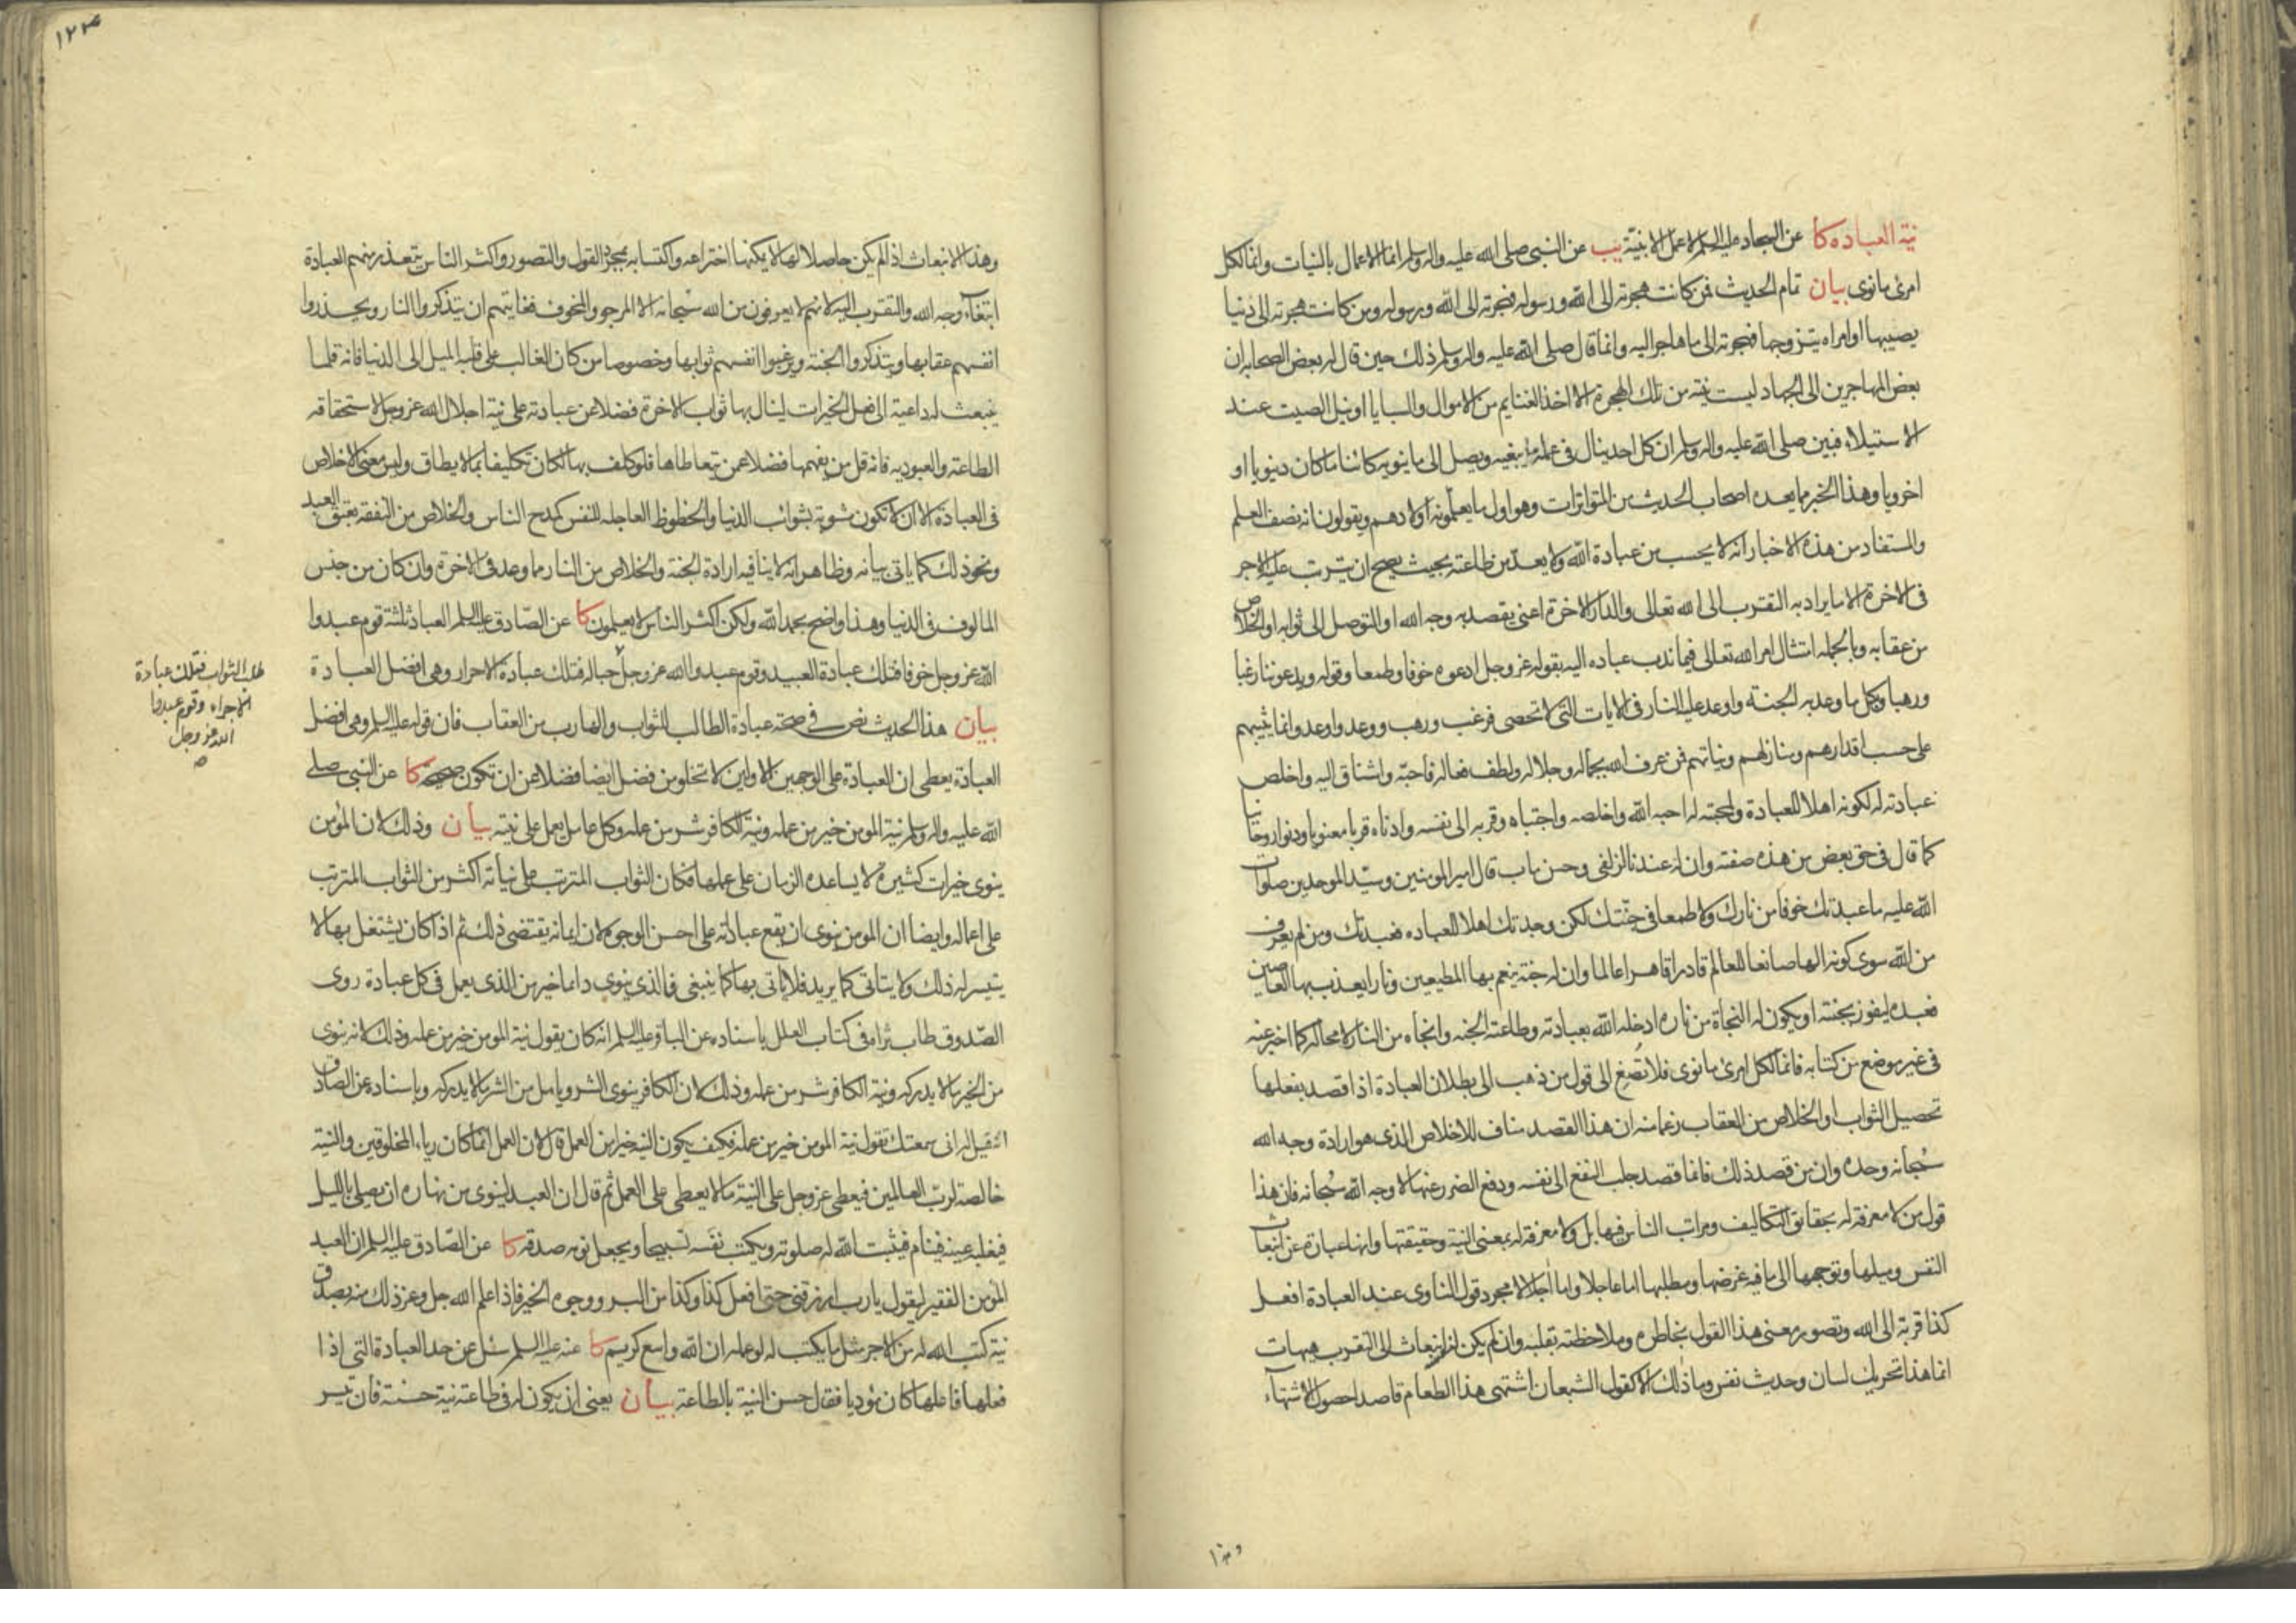 نية العباده كا عن السجاد عليه السلم لا عمل الا بنيّة يب عن النبي صلى الله عليه واله وسلم انما الاعمال بالنيات وانما لكل
امرئ ما نوى بيان تمام الحديث فمن كانت هجرته الى الله ورسوله فهجرته الى الله ورسوله ومن كانت هجرته الى دنيا
يصيبها او امراه يتزوجها فهجرته الى ما هاجر اليه وانما قال صلى الله عليه واله وسلم ذلك حين قال له بعض الصحابه ان
بعض المهاجرين الى الجهاد ليست نيته من تلك الهجرة الا اخذ الغنايم من الاموال والسبايا او نيل الصيت عند
الاستيلاء فبين صلى الله عليه واله وسلم ان كل احد ينال في عمله ما يبغيه ويصل الى ما ينويه كائنا ما كان دنيويا او
اخرويا وهذا الخبر مما يعده اصحاب الحديث من المتواترات وهو اول ما يعلّمونه اولادهم ويقولون انه نصف العلم
والمستفاد من هذه الاخبار انه لا يحسب من عبادة الله ولا يعدّ من طاعته بحيث يصح ان يترتب عليه الاجر
فى الاخرة الا ما يراد به التقرب الى الله تعالى والدار الاخرة اعنى يقصد به وجه الله او التوصل الى ثوابه او الخلاص
من عقابه وبالجمله امتثال امر الله تعالى فيما ندب عباده اليه بقوله عز وجل ادعوه خوفا وطمعا وقوله ويدعوننا رغبا
ورهبا وبكل ما وعد به الجنته واوعد عليه النار فى الايات التى لا تحصى فرغب ورهب ووعد واوعد وانما يثيبهم
على حسب اقدارهم ومنازلهم ونياتهم فمن عرف الله بجماله وجلاله ولطف فعاله فاحبّه واشتاق اليه واخلص
عبادته له لكونه اهلا للعبادة ولمحبته له احبه الله واخلصه واجتباه وقربه الى نفسه وادناه قربا معنويا ودنوا روحانيا
كما قال فى حق بعض من هذه صفته وان له عندنا لزلفى وحسن ماب قال امير المومنين وسيّد الموحدين صلوات
الله عليه ما عبدتك خوفا من نارك ولا طمعا فى جنّتك لكن وجدتك اهلا للعباده فعبدتك ومن لم يعرف
من الله سوى كونه الها صانعا للعالم قادرا قاهرا عالما وان له جنته ينعم بها المطيعين ونارا يعذب بها العاصين
فعبده ليفوز بجنته او يكون له النجاة من ناره ادخله الله بعبادته وطاعته الجنه وانجاه من النار لا محاله كما اخبر عنه
فى غير موضع من كتابه فانما لكل امرئ ما نوى فلا تُصغِ الى قول من ذهب الى بطلان العبادة اذا قصد بفعلها
تحصيل الثواب او الخلاص من العقاب زعما منه ان هذا القصد مناف للاخلاص الذى هو ارادة وجه الله
سُبحانه وحده وان من قصد ذلك فانما قصد جلب النفع الى نفسه ودفع الضرر عنها لا وجه الله سُبحانه فان هذا
قول من لا معرفة له بحقائق التكاليف ومراتب الناس فيها بل ولا معرفة له بمعنى النية وحقيقتها وانها عبارة عن انبعاث
النفس وميلها وتوجهها الى ما فيه غرضها ومطلبها اما عاجلا واما اجلا لا مجرد قول الناوى عند العبادة افعل
كذا قربة الى الله وتصور معنى هذا القول بخاطره وملاحظته بقلبه وان لم يكن لنفسه انبعاث الى التقرب هيهات
انما هذا تحريك لسان وحدث نفس وما ذلك الا كقول الشبعان اشتهى هذا الطعام قاصدا حصول الاشتهاء
وهذا
١٢٤
وهذا الانبعاث اذا لم يكن حاصلا لها لا يمكنها اختراعه واكتسابه بمجرد القول والتصور واكثر الناس يتعذر منهم العبادة
ابتغاء وجه الله والتقرب اليه لانهم لا يعرفون من الله سبحانه الا المرجو والمخوف فغايتهم ان يتذكروا النار ويحذروا
انفسهم عقابها ويتذكروا الجنته ويرغبوا انفسهم ثوابها وخصوصا من كان الغالب على قلبه الميل الى الدنيا فانه قلما
ينبعث له داعية الى فعل الخيرات لينال بها ثواب الاخرة فضلا عن عبادته على نية اجلال الله عز وجل لاستحقاقه
الطاعته والعبوديه فانه قل من يفهمها فضلا عمن يتعاطاها فلو كلف بها لكان تكليفا بما لا يطاق وليس معنى الاخلاص
فى العبادة الا ان لا تكون مشوبة بشوائب الدنيا والحظوظ العاجله للنفس كمدح الناس والخلاص من النفقه بعتق العبد
ونحو ذلك كما ياتى بيانه وظاهر انه لا ينافيه ارادة الجنة والخلاص من النار مما وعد فى الاخرة وان كان من جنس
المالوف فى الدنيا وهذا واضح بحمد الله ولكن اكثر الناس لا يعلمون كا عن الصّادق عليه السلم العباد ثلثة قوم عبدوا
الله عز وجل خوفا فتلك عبادة العبيد وقوم عبدوا الله عز وجل حبا له فتلك عبادة الاحرار وهى افضل العبادة
طلب الثواب فتلك عبادة
الاجراء وقوم عبدوا
الله عز وجل
بيان هذا الحديث نص فى صحته عبادة الطالب للثواب والهارب من العقاب فان قوله عليه السلم وهى افضل
العبادة يعطى ان العبادة على الوجهين الاولين لا تخلو من فضل ايضا فضلا عن ان تكون صحيحه كا عن النبى صلى
الله عليه واله وسلم نية المومن خير من عمله ونية الكافر شر من عمله وكل عامل يعمل على نيته بيان وذلك لان المؤمن
ينوى خيرات كثيرة لا يساعده الزمان على عملها فكان الثواب المترتب على نياته اكثر من الثواب المترتب
على اعماله وايضا ان المومن ينوى ان يقع عبادته على احسن الوجوه لان ايمانه يقتضى ذلك ثم اذا كان يشتغل بها لا
يتيسر له ذلك ولا يتاتى كما يريد فلا ياتى بها كما ينبغى فالذى ينوى دائما خير من الذى يعمل فى كل عبادة روى
الصّدوق طاب ثراه فى كتاب العلل باسناده عن الباقر عليه السلم انه كان يقول نية المومن خير من عمله وذلك لانه ينوى
من الخير ما لا يدركه ونية الكافر شر من عمله وذلك لان الكافر ينوى الشر ويامل من الشر ما لا يدركه وباسناده عن الصادق
انه قيل له انى سمعتك تقول نية المومن خير من عمله فكيف يكون النية خيرا من العمل قال لان العمل انما كان رياء المخلوقين والنية
خالصة لرب العالمين فيعطى عز وجل على النية ما لا يعطى على العمل ثم قال ان العبد لينوى من نهاره ان يصلى بالليل
فيغلبه عينه فينام فيثبت الله له صلوته ويكتب نفَسه تسبيحا ويجعل نومه صدقه كا عن الصّادق عليه السلم ان العبد
المؤمن الفقير ليقول يا رب ارزقنى حتى افعل كذا وكذا من البر ووجوه الخير فاذا علم الله جل وعز ذلك منه بصدق
نية كتب الله له من الاجر مثل ما يكتب له لو عمله ان الله واسع كريم كا عنه عليه السلم سئل عن حد العبادة التى اذا
فعلها فاعلها كان مؤديا فقال حسن النية بالطاعة بيان يعنى ان يكون له فى طاعته نية حسنة فان تيسر